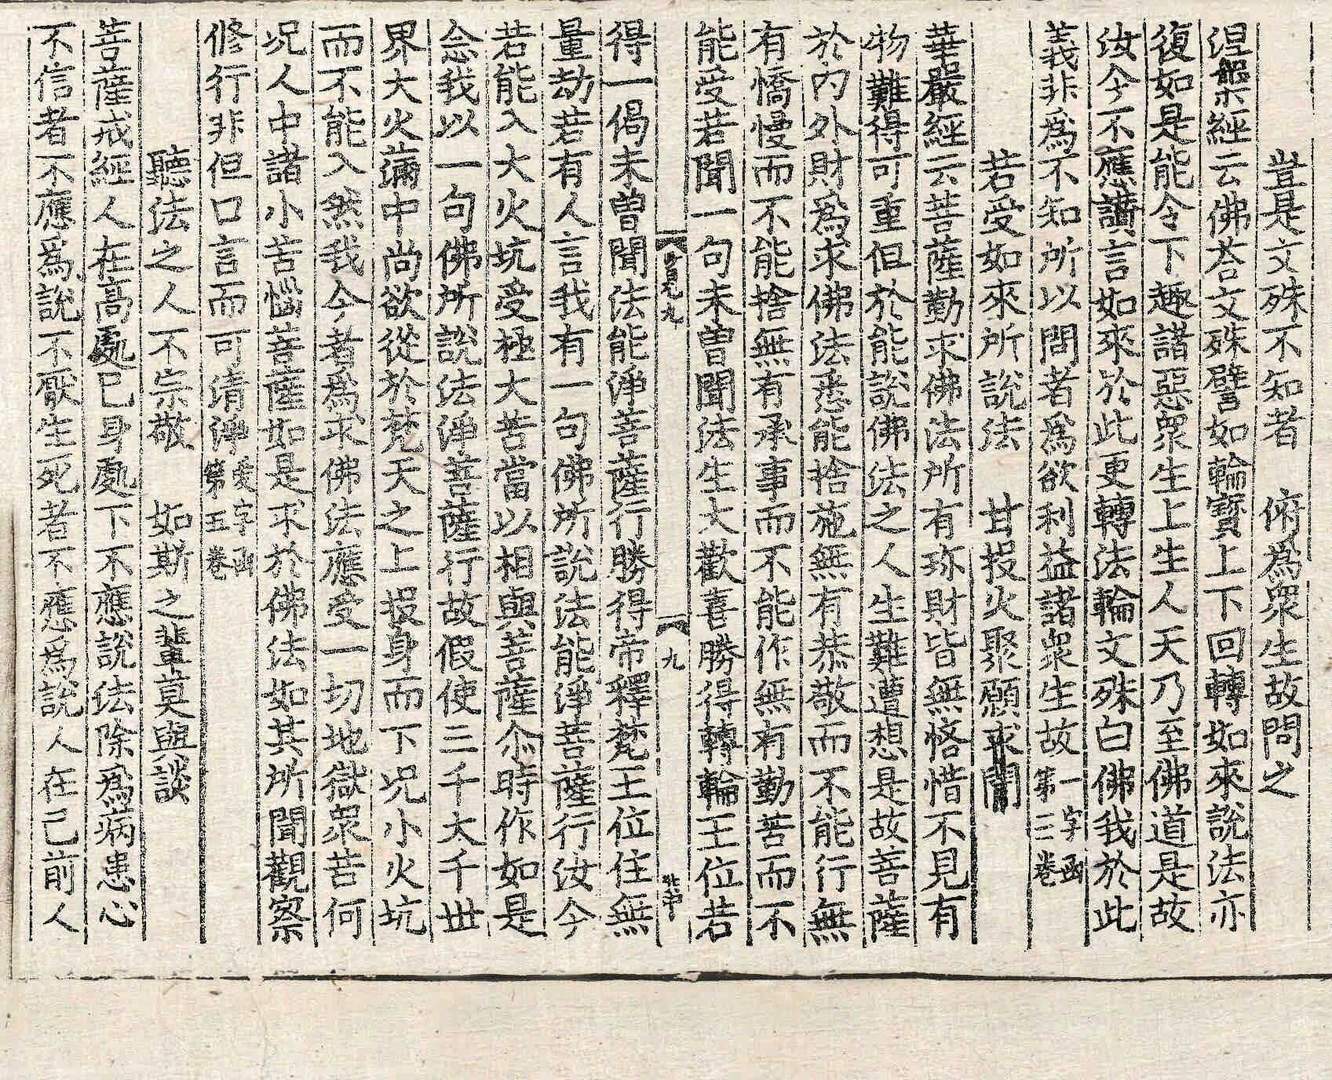 豈是文殊不知者　俯爲眾生故問之
涅槃經云佛荅文殊譬如輪寶上下回轉如來說法亦
復如是能令下趣諸惡眾生上生人天乃至佛道是故
汝今不應讃言如來於此更轉法輪文殊白佛我於此
義非爲不知所以問者爲欲利益諸眾生故一字函第三卷
若受如來所說法　甘投火聚願求聞
華嚴經云菩薩勤求佛法所有珎財皆無悋惜不見有
物難得可重但於能說佛法之人生難遭想是故菩薩
於內外財爲求佛法悉能捨施無有恭敬而不能行無
有憍慢而不能捨無有承事而不能作無有勤苦而不
能受若聞一句未曾聞法生大歡喜勝得轉輪王位若
九
得一偈未曾聞法能淨菩薩行勝得帝釋梵王位住無
量劫若有人言我有一句佛所說法能淨菩薩行汝今
若能入大火坑受極大苦當以相與菩薩尒時作如是
念我以一句佛所說法淨菩薩行故假使三千大千世
界大火滿中尚欲從於梵天之上投身而下况小火坑
而不能入然我今者爲求佛法應受一切地獄眾苦何
况人中諸小苦惱菩薩如是求於佛法如其所聞觀察
修行非但口言而可清淨愛字函第五卷
聽法之人不宗敬　如斯之輩莫與談
菩薩戒經人在高處已身處下不應說法除爲病患心
不信者不應爲說不厭生死者不應爲說人在己前人